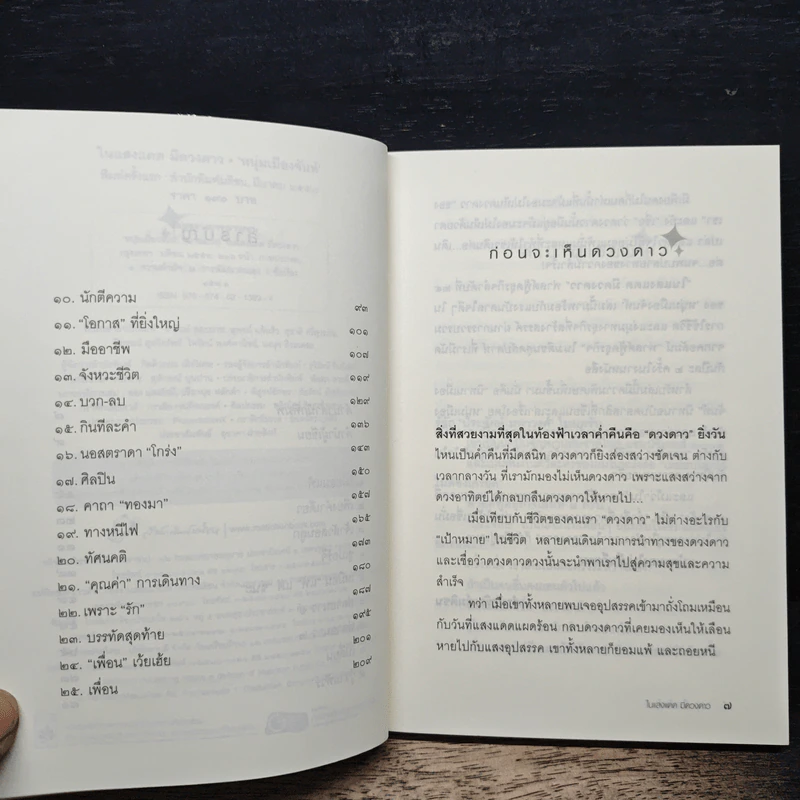 ๑๐. นักตีความ ๙๓
๑๑. "โอกาส" ที่ยิ่งใหญ่ ๑๐๑
๑๒. มืออาชีพ ๑๐๗
๑๓. จังหวะชีวิต ๑๑๙
๑๔. บวก-ลบ ๑๒๙
๑๕. กินทีละคำ ๑๓๖
๑๖. นอสตราดา "โกร่ง" ๑๔๓
๑๗. ศิลปิน ๑๕๐
๑๘. คาถา "ทองมา" ๑๕๗
๑๙. ทางหนีไฟ ๑๖๕
๒๐. ทัศนคติ ๑๗๓
๒๑. "คุณค่า" การเดินทาง ๑๘๐
๒๒. เพราะ "รัก" ๑๘๗
๒๓. บรรทัดสุดท้าย ๑๙๕
๒๔. "เพื่อน" เว้ยเฮ้ย ๒๐๑
๒๕. เพื่อน ๒๐๙
ก่อนจะเห็นดวงดาว
สิ่งที่สวยงามที่สุดในท้องฟ้าเวลาค่ำคืนคือ "ดวงดาว" ยิ่งวัน
ไหนเป็นค่ำคืนที่มืดสนิท ดวงดาวก็ยิ่งส่องสว่างชัดเจน ต่างกับ
เวลากลางวัน ที่เรามักมองไม่เห็นดวงดาว เพราะแสงสว่างจาก
ดวงอาทิตย์ได้กลบกลืนดวงดาวให้หายไป...
เมื่อเทียบกับชีวิตของคนเรา "ดวงดาว" ไม่ต่างอะไรกับ
"เป้าหมาย" ในชีวิต หลายคนเดินตามการนำทางของดวงดาว
และเชื่อว่าดวงดาวดวงนั้นจะนำพาเราไปสู่ความสุขและความ
สำเร็จ
ทว่า เมื่อเขาทั้งหลายพบเจออุปสรรคเข้ามาถั่งโถมเหมือน
กับวันที่แสงแดดแผดร้อน กลบดวงดาวที่เคยมองเห็นให้เลือน
หายไปกับแสงอุปสรรค เขาทั้งหลายก็ยอมแพ้ และถอยหนี
ในแสงแดด มีดวงดาว ๗